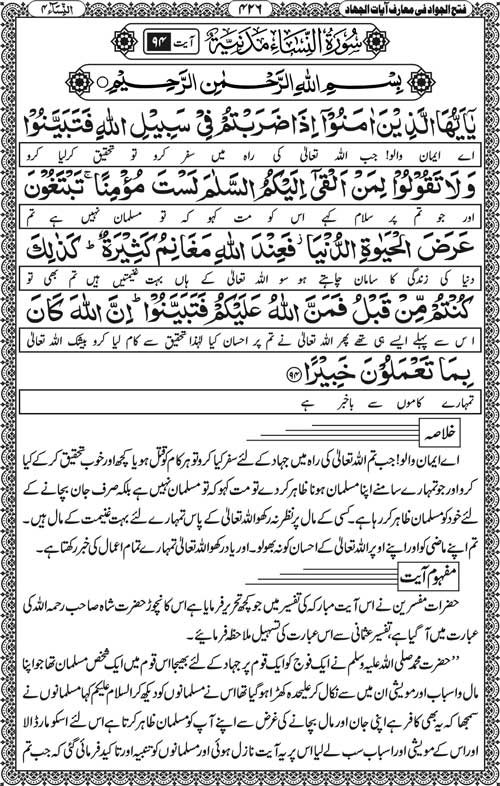 النساء ۴ ۴۲۶ فتح الجواد فی معارف آیات الجہاد
سُوْرَةُ النِّسَاۤءِ مَدَنِيَّةٌ آیت ۹۴
بِسْمِ اللهِ الرَّحْمٰنِ الرَّحِيْمِ
يٰۤاَيُّهَا الَّذِيْنَ اٰمَنُوْۤا اِذَا ضَرَبْتُمْ فِيْ سَبِيْلِ اللهِ فَتَبَيَّنُوْا
اے ایمان والو! جب اللہ تعالیٰ کی راہ میں سفر کرو تو تحقیق کرلیا کرو
وَلَا تَقُوْلُوْا لِمَنْ اَلْقٰۤى اِلَيْكُمُ السَّلٰمَ لَسْتَ مُؤْمِنًا ۚ تَبْتَغُوْنَ
اور جو تم پر سلام کہے اس کو مت کہو کہ تو مسلمان نہیں ہے تم
عَرَضَ الْحَيٰوةِ الدُّنْيَا ۫ فَعِنْدَ اللهِ مَغَانِمُ كَثِيْرَةٌ ؕ كَذٰلِكَ
دنیا کی زندگی کا سامان چاہتے ہو سو اللہ تعالیٰ کے ہاں بہت غنیمتیں ہیں تم بھی تو
كُنْتُمْ مِّنْ قَبْلُ فَمَنَّ اللهُ عَلَيْكُمْ فَتَبَيَّنُوْا ؕ اِنَّ اللهَ كَانَ
اس سے پہلے ایسے ہی تھے پھر اللہ تعالیٰ نے تم پر احسان کیا لہٰذا تحقیق سے کام لیا کرو بیشک اللہ تعالیٰ
بِمَا تَعْمَلُوْنَ خَبِيْرًا ﴿۹۴﴾
تمہارے کاموں سے باخبر ہے
خلاصہ
اے ایمان والو! جب تم اللہ تعالیٰ کی راہ میں جہاد کے لئے سفر کیا کرو تو ہر کام کو قتل ہو یا کچھ اور خوب تحقیق کر کے کیا
کرو اور جو تمہارے سامنے اپنا مسلمان ہونا ظاہر کردے تو مت کہو کہ تو مسلمان نہیں ہے بلکہ صرف جان بچانے کے
لئے خود کو مسلمان ظاہر کر رہا ہے۔ کسی کے مال پر نظر نہ رکھو اللہ تعالیٰ کے پاس تمہارے لئے بہت غنیمت کے مال ہیں۔
تم اپنے ماضی کو اور اپنے اوپر اللہ تعالیٰ کے احسان کو نہ بھولو۔ اور یاد رکھو اللہ تعالیٰ تمہارے تمام اعمال کی خبر رکھتا ہے۔
مفہوم آیت
حضرات مفسرین نے اس آیت مبارکہ کی تفسیر میں جو کچھ تحریر فرمایا ہے اس کا نچوڑ حضرت شاہ صاحب رحمہ اللہ کی
عبارت میں آ گیا ہے، تفسیر عثمانی سے اس عبارت کی تسہیل ملاحظہ فرمائیے۔
”حضرت محمد صلی اللہ علیہ وسلم نے ایک فوج کو ایک قوم پر جہاد کے لئے بھیجا اس قوم میں ایک شخص مسلمان تھا جو اپنا
مال و اسباب اور مویشی ان میں سے نکال کر علیحدہ کھڑا ہو گیا تھا اس نے مسلمانوں کو دیکھ کر السلام علیکم کہا مسلمانوں نے
سمجھا کہ یہ بھی کافر ہے اپنی جان اور مال بچانے کی غرض سے اپنے آپ کو مسلمان ظاہر کرتا ہے اس لئے اسکو مار ڈالا
اور اس کے مویشی اور اسباب سب لے لیا اس پر یہ آیت نازل ہوئی اور مسلمانوں کو تنبیہ اور تاکید فرمائی گئی کہ جب تم